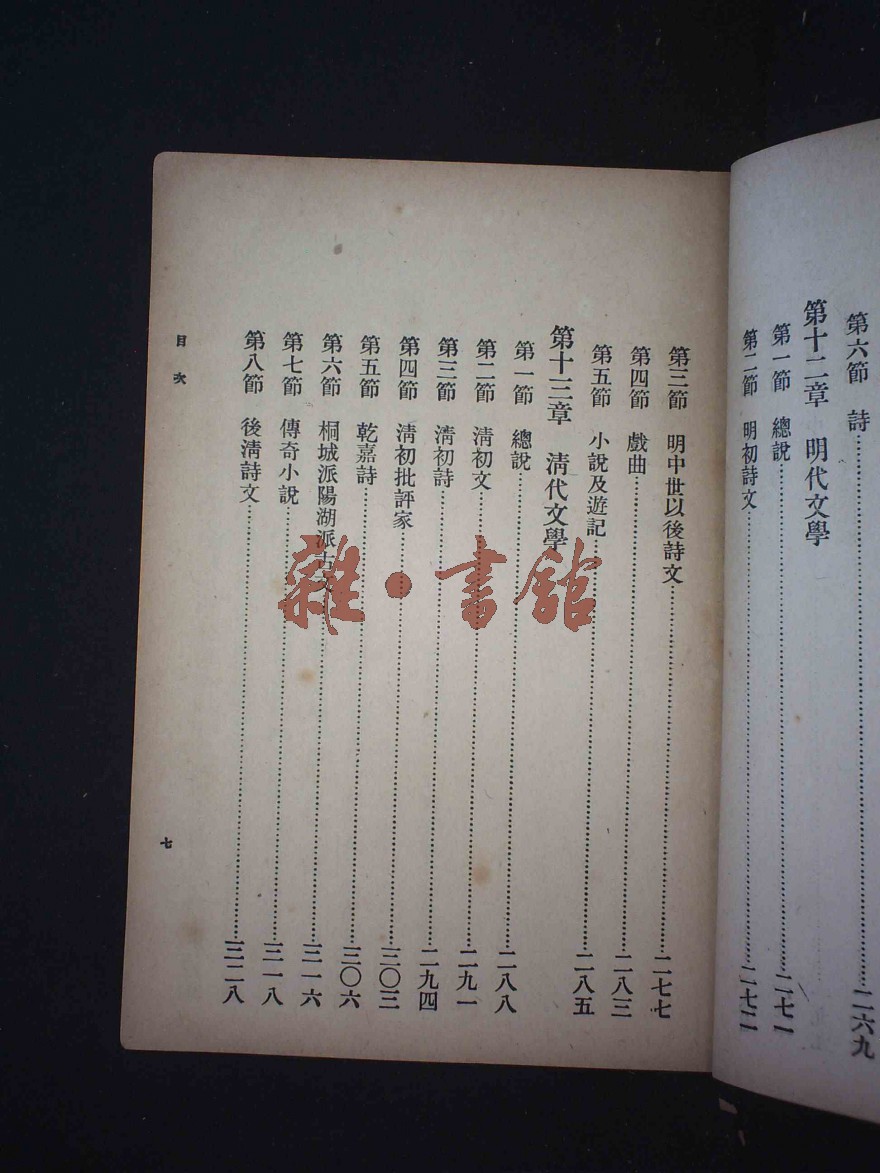 第六節　詩……二六九
第十二章　明代文學
第一節　總說……二七一
第二節　明初詩文……二七二
第三節　明中世以後詩文……二七七
第四節　戲曲……二八三
第五節　小說及遊記……二八五
第十三章　清代文學
第一節　總說……二八八
第二節　清初文……二九一
第三節　清初詩……二九四
第四節　清初批評家……三〇三
第五節　乾嘉詩……三〇六
第六節　桐城派陽湖派古文……三一六
第七節　傳奇小說……三一八
第八節　後清詩文……三二八
目次
七
雜·書館